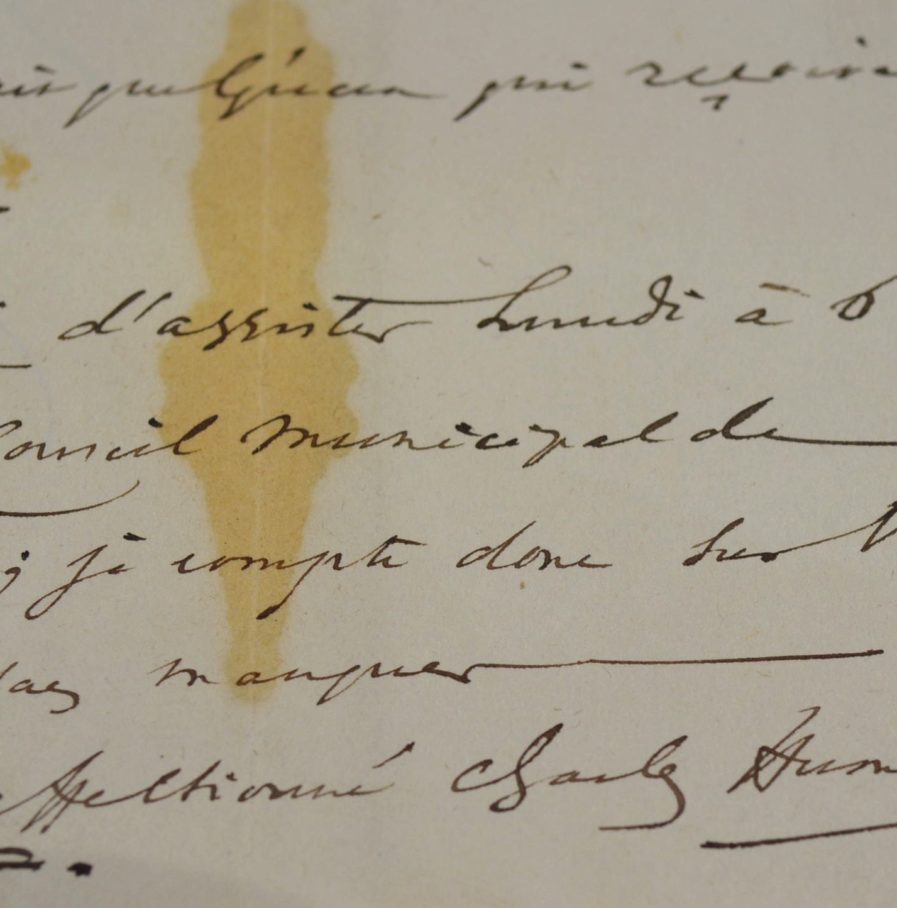 quelqu'un qui reçoive
d'assister Lundi à 6
Conseil Municipal de
; je compte donc sur
pas manquer
affectionné Charles